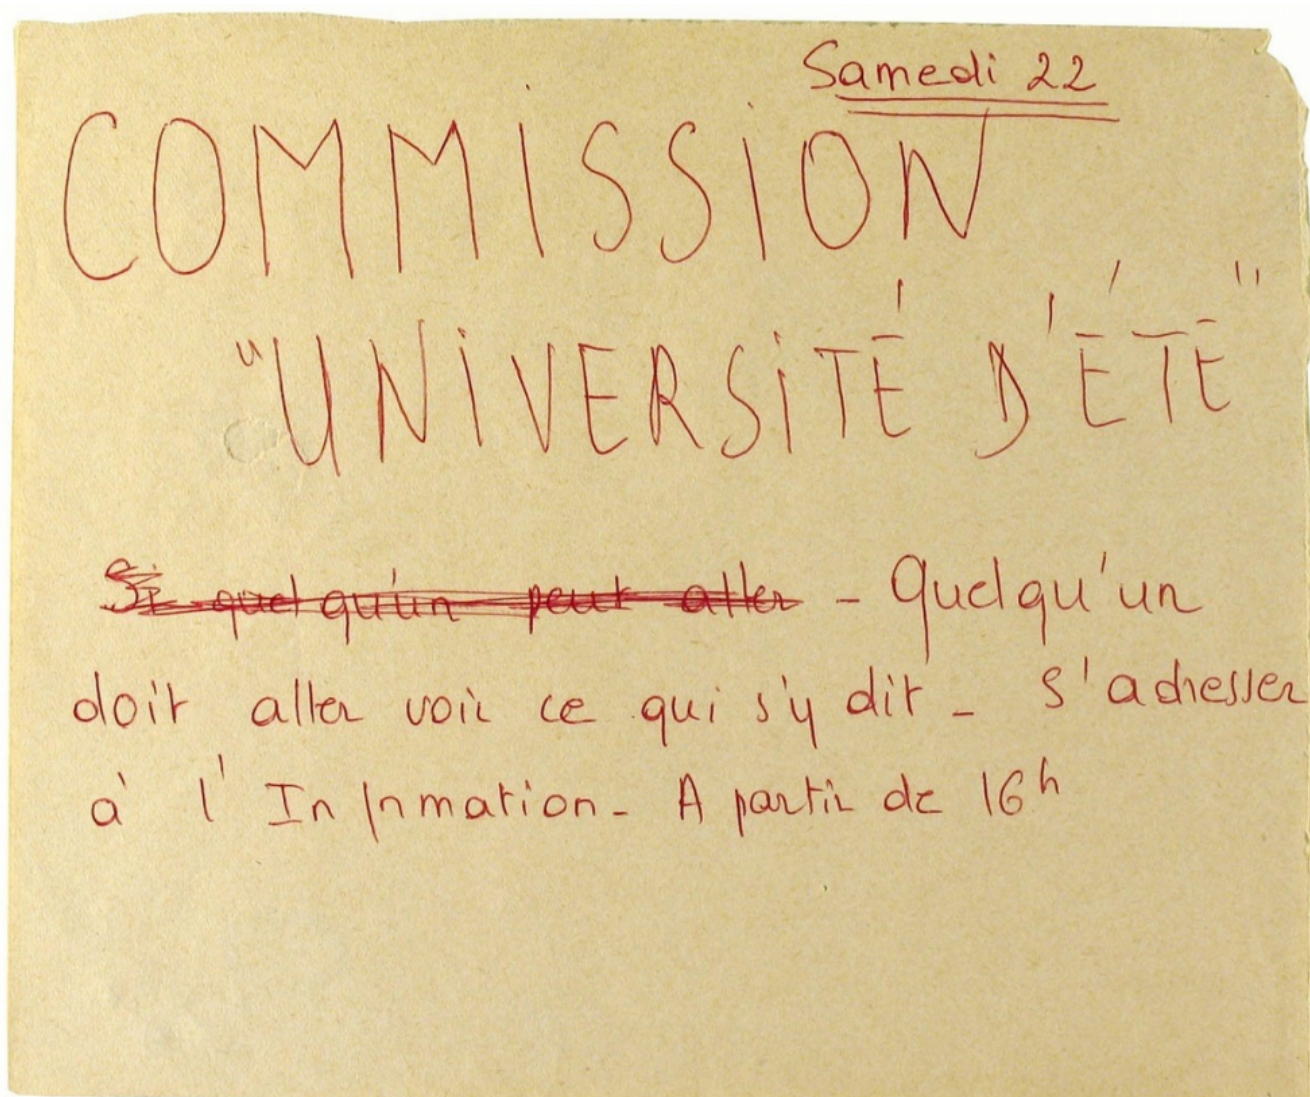 Samedi 22
COMMISSION
"UNIVERSITÉ D'ÉTÉ"
Si quelqu'un peut aller - Quelqu'un
doit aller voir ce qui s'y dit - s'adresser
à l'Information - A partir de 16h